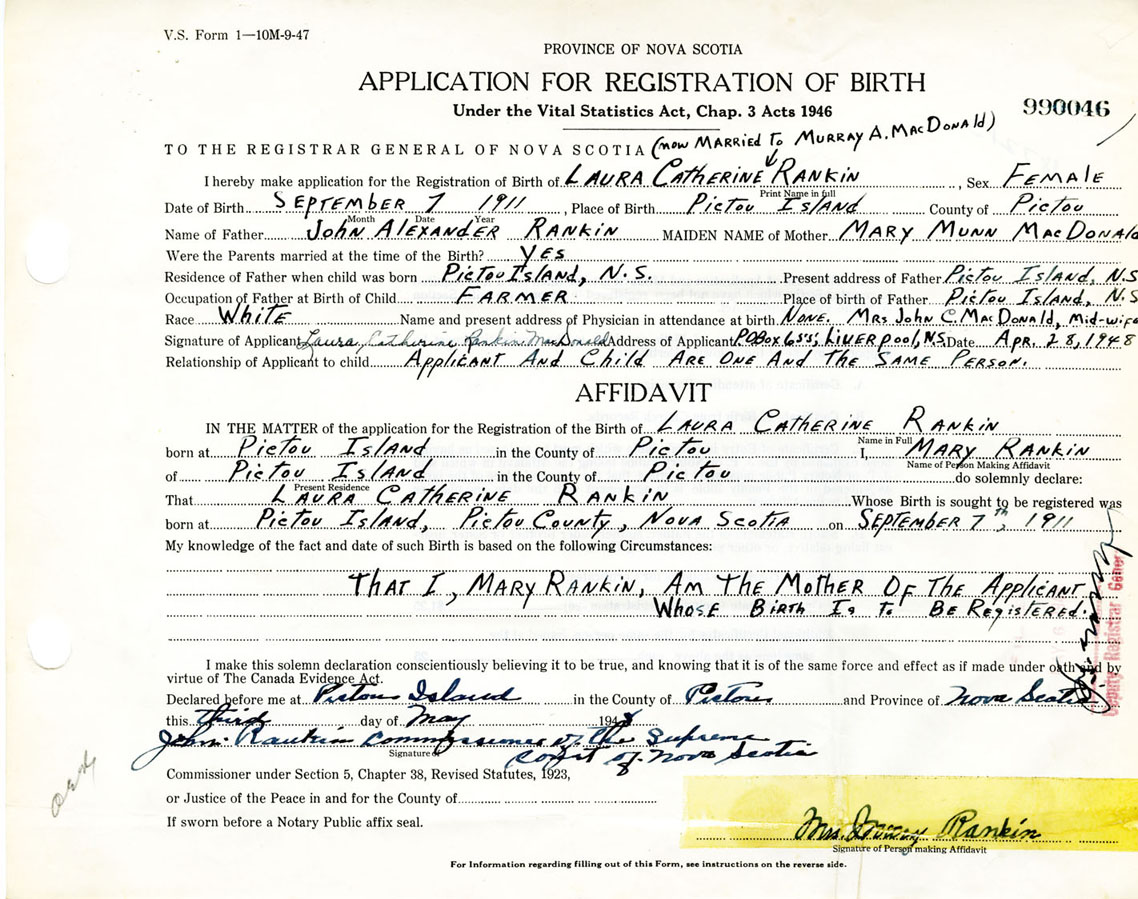 V.S. Form 1—10M-9-47
PROVINCE OF NOVA SCOTIA
APPLICATION FOR REGISTRATION OF BIRTH
Under the Vital Statistics Act, Chap. 3 Acts 1946
990046
(now MARRIED To MURRAY A. MacDonald)
TO THE REGISTRAR GENERAL OF NOVA SCOTIA
I hereby make application for the Registration of Birth of LAURA CATHERINE RANKIN, Sex FEMALE
Print Name in full
Date of Birth SEPTEMBER 7 1911, Place of Birth PICTOU ISLAND County of PICTOU
Month Date Year
Name of Father JOHN ALEXANDER RANKIN MAIDEN NAME of Mother MARY MUNN MACDONALD
Were the Parents married at the time of the Birth? YES
Residence of Father when child was born PICTOU ISLAND, N.S. Present address of Father PICTOU ISLAND, N.S
Occupation of Father at Birth of Child FARMER Place of birth of Father PICTOU ISLAND, N.S
Race WHITE Name and present address of Physician in attendance at birth NONE. MRS JOHN C. MACDONALD, MID-WIFE
Signature of Applicant Laura Catherine Rankin MacDonald Address of Applicant P.O Box 655, LIVERPOOL, N.S. Date APR. 28, 1948
Relationship of Applicant to child APPLICANT AND CHILD ARE ONE AND THE SAME PERSON.
AFFIDAVIT
IN THE MATTER of the application for the Registration of the Birth of LAURA CATHERINE RANKIN
Name in Full
born at PICTOU ISLAND in the County of PICTOU I, MARY RANKIN
Name of Person Making Affidavit
of PICTOU ISLAND in the County of PICTOU do solemnly declare:
Present Residence
That LAURA CATHERINE RANKIN Whose Birth is sought to be registered was
born at PICTOU ISLAND, PICTOU COUNTY, NOVA SCOTIA on SEPTEMBER 7th, 1911
My knowledge of the fact and date of such Birth is based on the following Circumstances:
THAT I, MARY RANKIN, AM THE MOTHER OF THE APPLICANT
WHOSE BIRTH IS TO BE REGISTERED.
I make this solemn declaration conscientiously believing it to be true, and knowing that it is of the same force and effect as if made under oath and by
virtue of The Canada Evidence Act.
Declared before me at Pictou Island in the County of Pictou and Province of Nova Scotia
this third day of May 1948
John Rankin Commissioner of the Supreme
court of Nova Scotia
Signature
Commissioner under Section 5, Chapter 38, Revised Statutes, 1923,
or Justice of the Peace in and for the County of
If sworn before a Notary Public affix seal.
Mrs. Rankin
Signature of Person making Affidavit
For Information regarding filling out of this Form, see instructions on the reverse side.
Deputy Registrar General